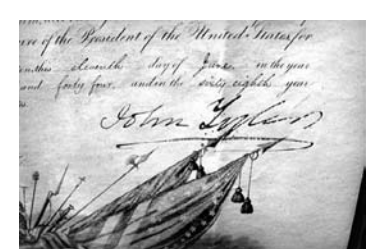 of the President of the United States for
eleventh day of June in the year
and forty four, and in the sixty eighth year
John Tyler